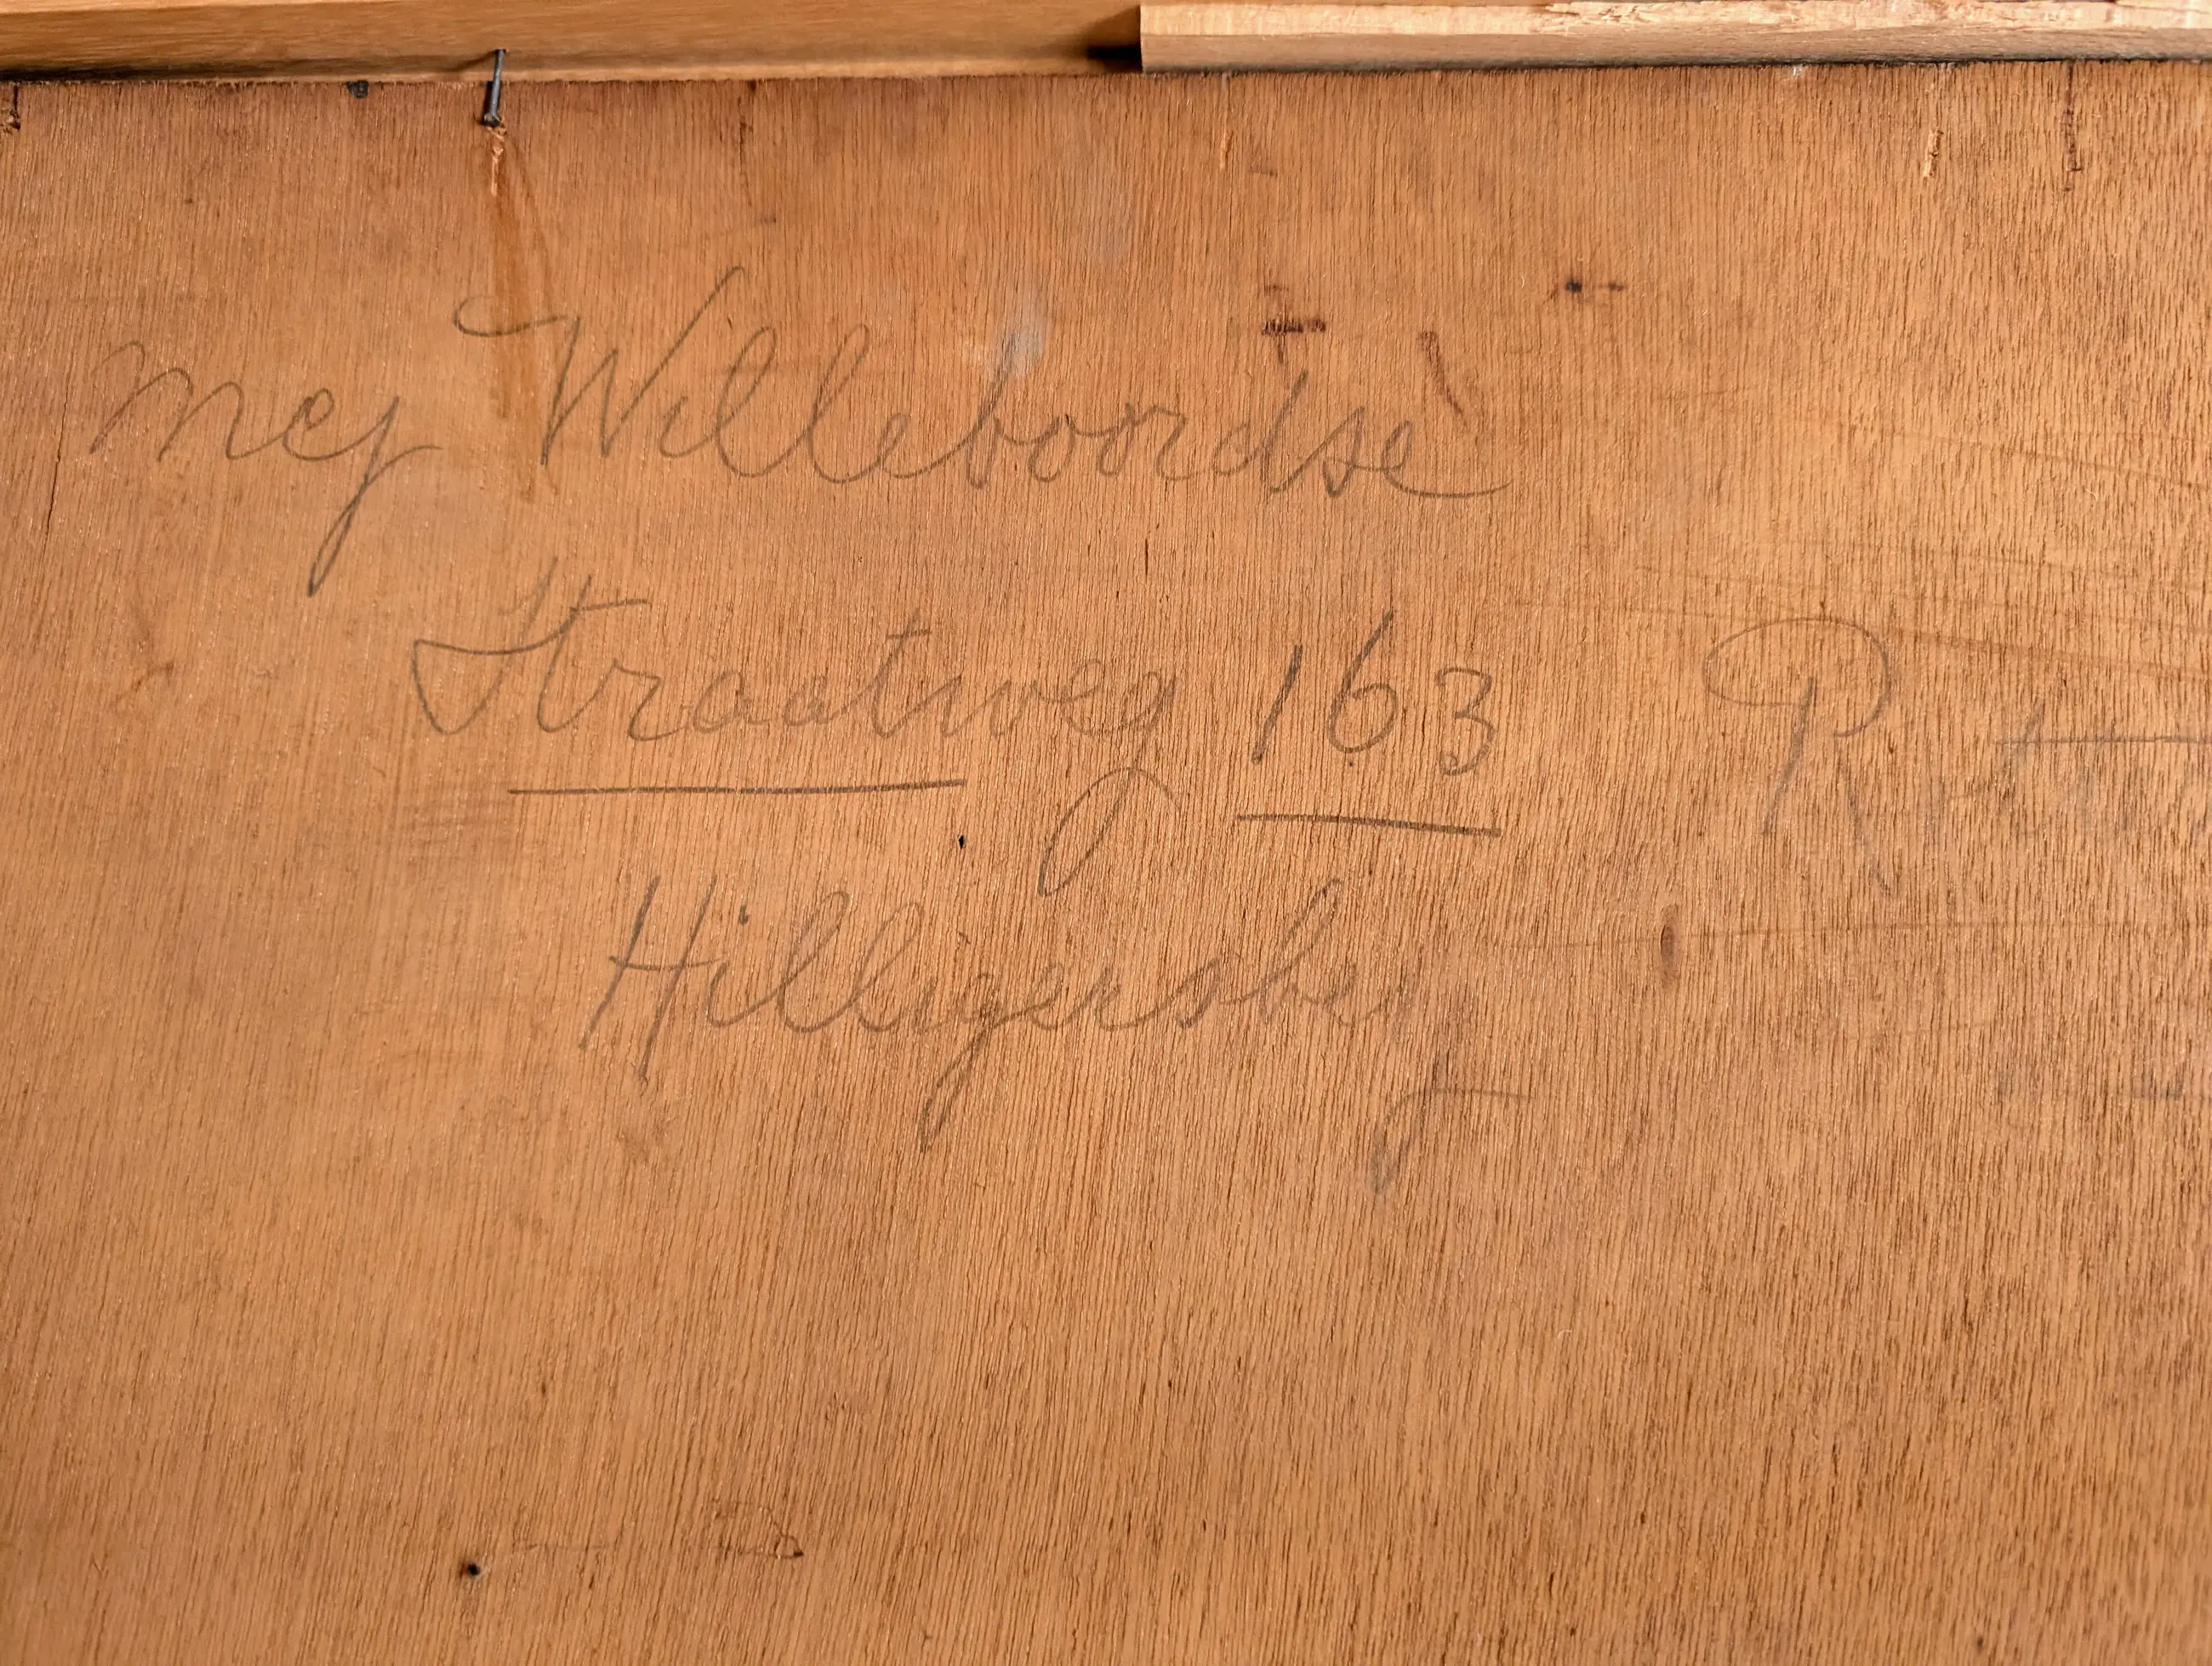 Mej Willeboordse
Straatweg 163
Hilligersberg